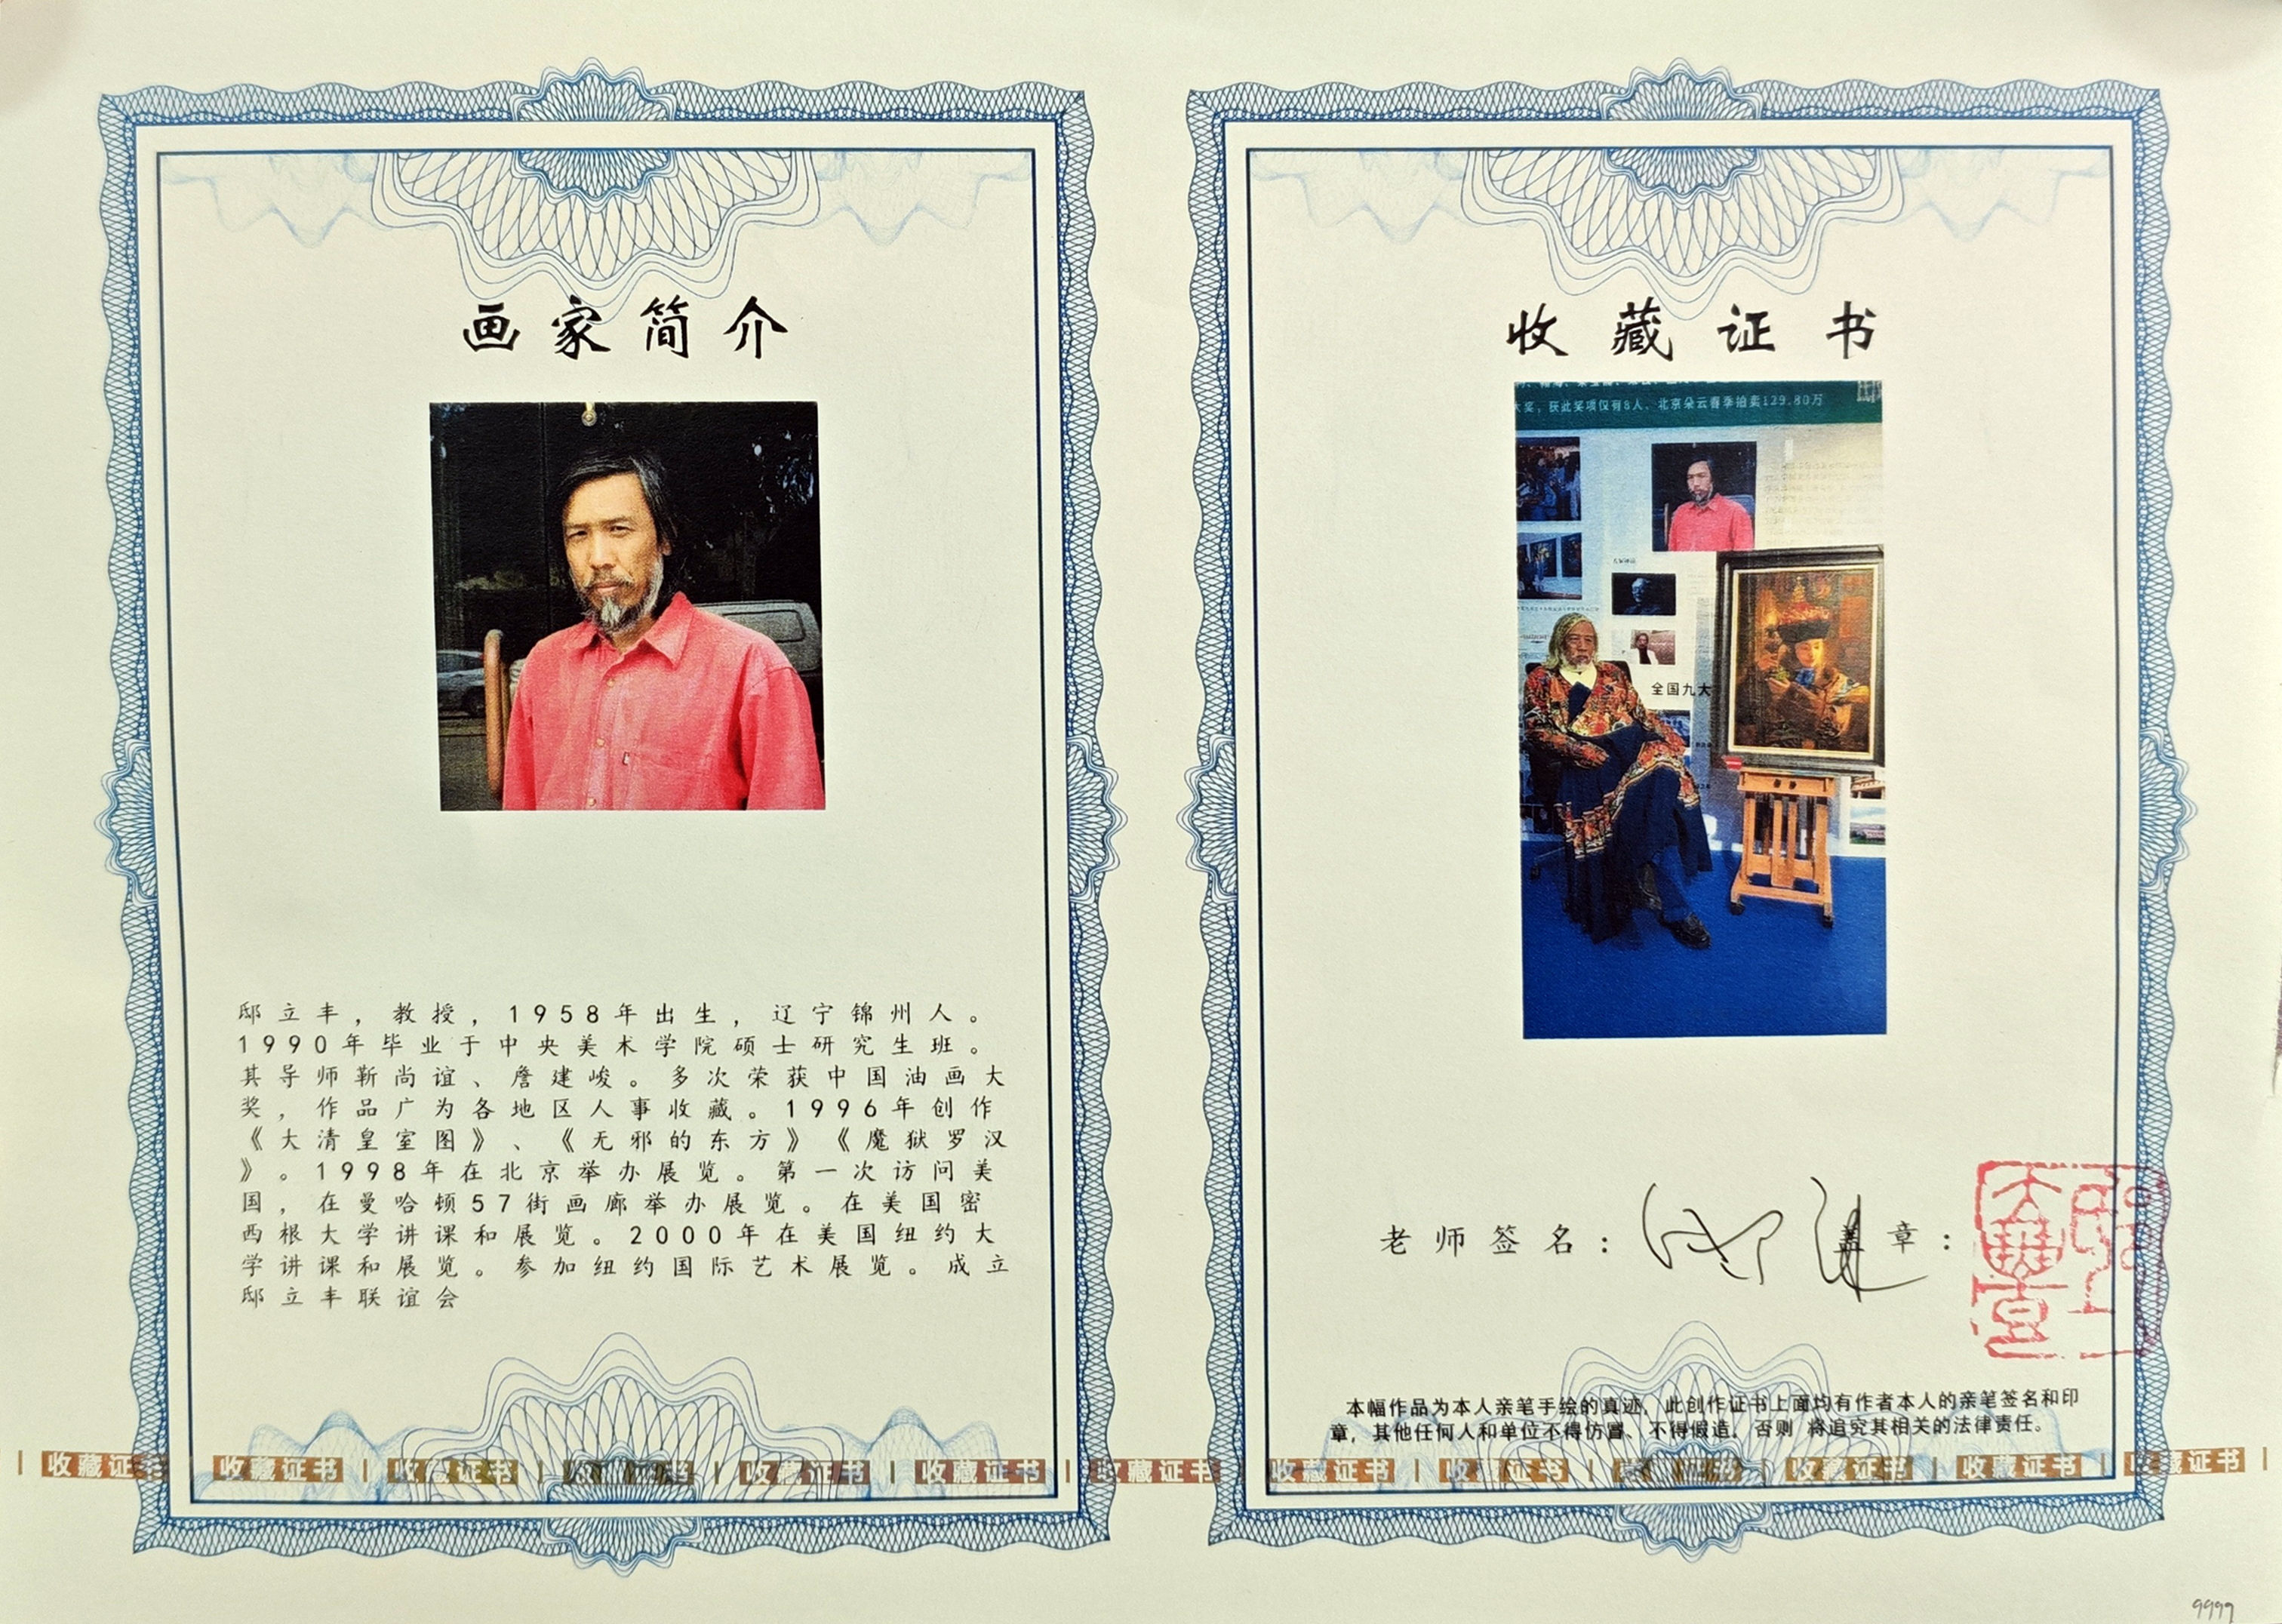 画家简介
邸立丰，教授，1958年出生，辽宁锦州人。
1990年毕业于中央美术学院硕士研究生班。
其导师靳尚谊、詹建峻。多次荣获中国油画大
奖，作品广为各地区人事收藏。1996年创作
《大清皇室图》、《无邪的东方》《魔狱罗汉
》。1998年在北京举办展览。第一次访问美
国，在曼哈顿57街画廊举办展览。在美国密
西根大学讲课和展览。2000年在美国纽约大
学讲课和展览。参加纽约国际艺术展览。成立
邸立丰联谊会
收藏证书
大奖，获此奖项仅有8人，北京朵云春季拍卖129.80万
全国九大
老师签名： 盖章：
本幅作品为本人亲笔手绘的真迹，此创作证书上面均有作者本人的亲笔签名和印
章，其他任何人和单位不得仿冒、不得假造，否则 将追究其相关的法律责任。
收藏证书 | 收藏证书 | 收藏证书 | 收藏证书 | 收藏证书 | 收藏证书 | 收藏证书 | 收藏证书 | 收藏证书 | 收藏证书 | 收藏证书 | 收藏证书 | 收藏证书
9999